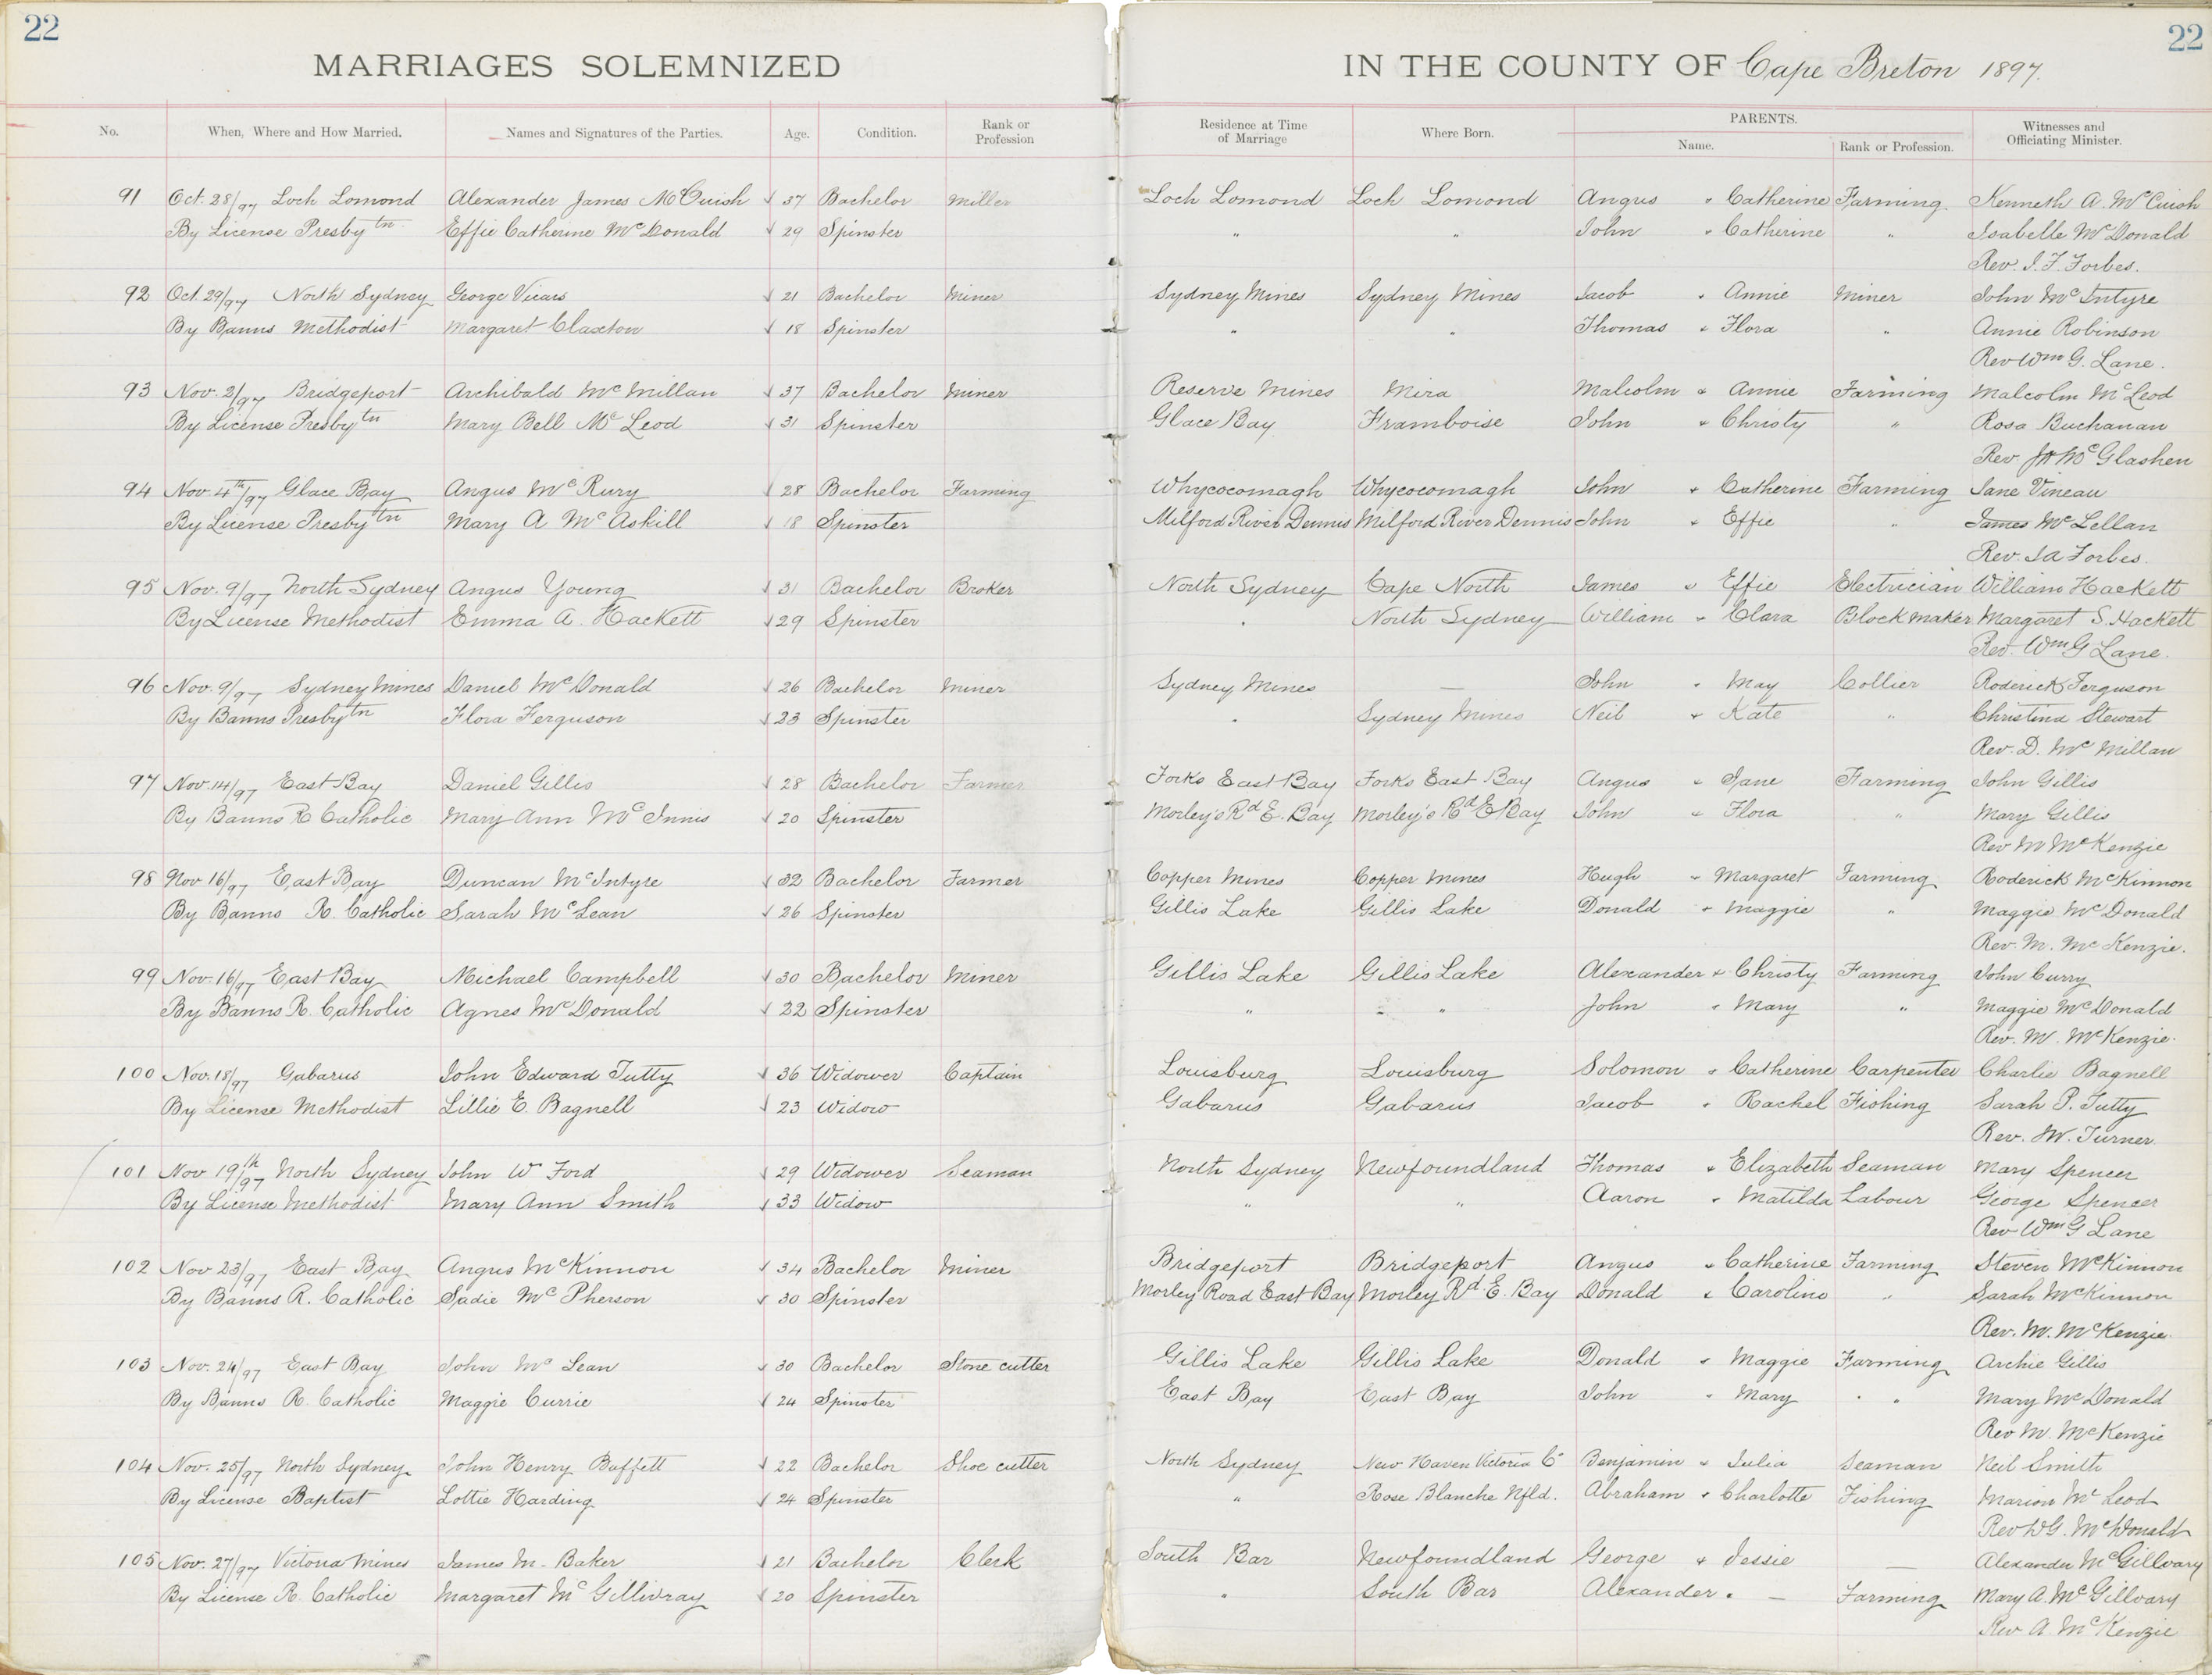 22
22
MARRIAGES SOLEMNIZED IN THE COUNTY OF Cape Breton 1897.
No. When, Where and How Married. Names and Signatures of the Parties. Age. Condition. Rank or Profession Residence at Time of Marriage Where Born. PARENTS. Name. Rank or Profession. Witnesses and Officiating Minister.
91 Oct. 28/97 Loch Lomond Alexander James McCuish √ 37 Bachelor Miller Loch Lomond Loch Lomond Angus " Catherine Farming Kenneth A. McCuish
By License Presbytn Effie Catherine McDonald √ 29 Spinster " " John " Catherine " Isabelle McDonald
Rev. J. F. Forbes.
92 Oct. 29/97 North Sydney George Vicars √ 21 Bachelor Miner Sydney Mines Sydney Mines Jacob " Annie Miner John McIntyre
By Banns Methodist Margaret Claxton √ 18 Spinster " " Thomas & Flora " Annie Robinson
Rev Wm G. Lane.
93 Nov. 2/97 Bridgeport Archibald McMillan √ 37 Bachelor Miner Reserve Mines Mira Malcolm & Annie Farming Malcolm McLeod
By License Presbytn Mary Bell McLeod √ 31 Spinster Glace Bay Framboise John & Christy " Rosa Buchanan
Rev McGlashen
94 Nov. 4th/97 Glace Bay Angus McRury √ 28 Bachelor Farming Whycocomagh Whycocomagh John & Catherine Farming Jane Vineau
By License Presbytn Mary A McAskill √ 18 Spinster Milford River Dennis Milford River Dennis John & Effie " James McLellan
Rev. J A Forbes.
95 Nov. 9/97 North Sydney Angus Young √ 31 Bachelor Broker North Sydney Cape North James & Effie Electrician William Hackett
By License Methodist Emma A. Hackett √ 29 Spinster " North Sydney William & Clara Block maker Margaret S. Hackett
Rev. Wm G Lane.
96 Nov. 9/97 Sydney Mines Daniel McDonald √ 26 Bachelor Miner Sydney Mines — John " May Collier Roderick Ferguson
By Banns Presbytn Flora Ferguson √ 23 Spinster " Sydney Mines Neil & Kate " Christina Stewart
Rev. D. McMillan
97 Nov. 14/97 East Bay Daniel Gillis √ 28 Bachelor Farmer Forks East Bay Forks East Bay Angus & Jane Farming John Gillis
By Banns R Catholic Mary Ann McInnis √ 20 Spinster Morley's Rd E. Bay Morley's Rd E Bay John & Flora " Mary Gillis
Rev M McKenzie
98 Nov 16/97 East Bay Duncan McIntyre √ 32 Bachelor Farmer Copper Mines Copper Mines Hugh & Margaret Farming Roderick McKinnon
By Banns R. Catholic Sarah McLean √ 26 Spinster Gillis Lake Gillis Lake Donald & Maggie " Maggie McDonald
Rev. M. McKenzie.
99 Nov. 16/97 East Bay Michael Campbell √ 30 Bachelor Miner Gillis Lake Gillis Lake Alexander & Christy Farming John Curry
By Banns R. Catholic Agnes McDonald √ 22 Spinster " " John " Mary " Maggie McDonald
Rev. M. McKenzie.
100 Nov. 18/97 Gabarus John Edward Tutty √ 36 Widower Captain Louisburg Louisburg Solomon & Catherine Carpenter Charlie Bagnell
By License Methodist Lillie E. Bagnell √ 23 Widow Gabarus Gabarus Jacob " Rachel Fishing Sarah P. Tutty
Rev. W. Turner.
101 Nov 19th/97 North Sydney John W Ford √ 29 Widower Seaman North Sydney Newfoundland Thomas & Elizabeth Seaman Mary Spencer
By License Methodist Mary Ann Smith √ 33 Widow " " Aaron " Matilda Labour George Spencer
Rev Wm G Lane
102 Nov 23/97 East Bay Angus McKinnon √ 34 Bachelor Miner Bridgeport Bridgeport Angus & Catherine Farming Steven McKinnon
By Banns R. Catholic Sadie McPherson √ 30 Spinster Morley Road East Bay Morley Rd E. Bay Donald & Caroline " Sarah McKinnon
Rev. M. McKenzie
103 Nov. 24/97 East Bay John McLean √ 30 Bachelor Stone cutter Gillis Lake Gillis Lake Donald & Maggie Farming Archie Gillis
By Banns R. Catholic Maggie Currie √ 24 Spinster East Bay East Bay John " Mary " Mary McDonald
Rev M. McKenzie
104 Nov. 25/97 North Sydney John Henry Buffett √ 22 Bachelor Shoe cutter North Sydney New Haven Victoria Co Benjamin & Julia Seaman Neil Smith
By License Baptist Lottie Harding √ 24 Spinster " Rose Blanche Nfld. Abraham & Charlotte Fishing Marion McLeod
Rev W G. McDonald
105 Nov. 27/97 Victoria Mines James M. Baker √ 21 Bachelor Clerk South Bar Newfoundland George & Jessie — Alexander McGillvary
By License R. Catholic Margaret McGillivray √ 20 Spinster " South Bar Alexander " — Farming Mary A. McGillvary
Rev A. McKenzie